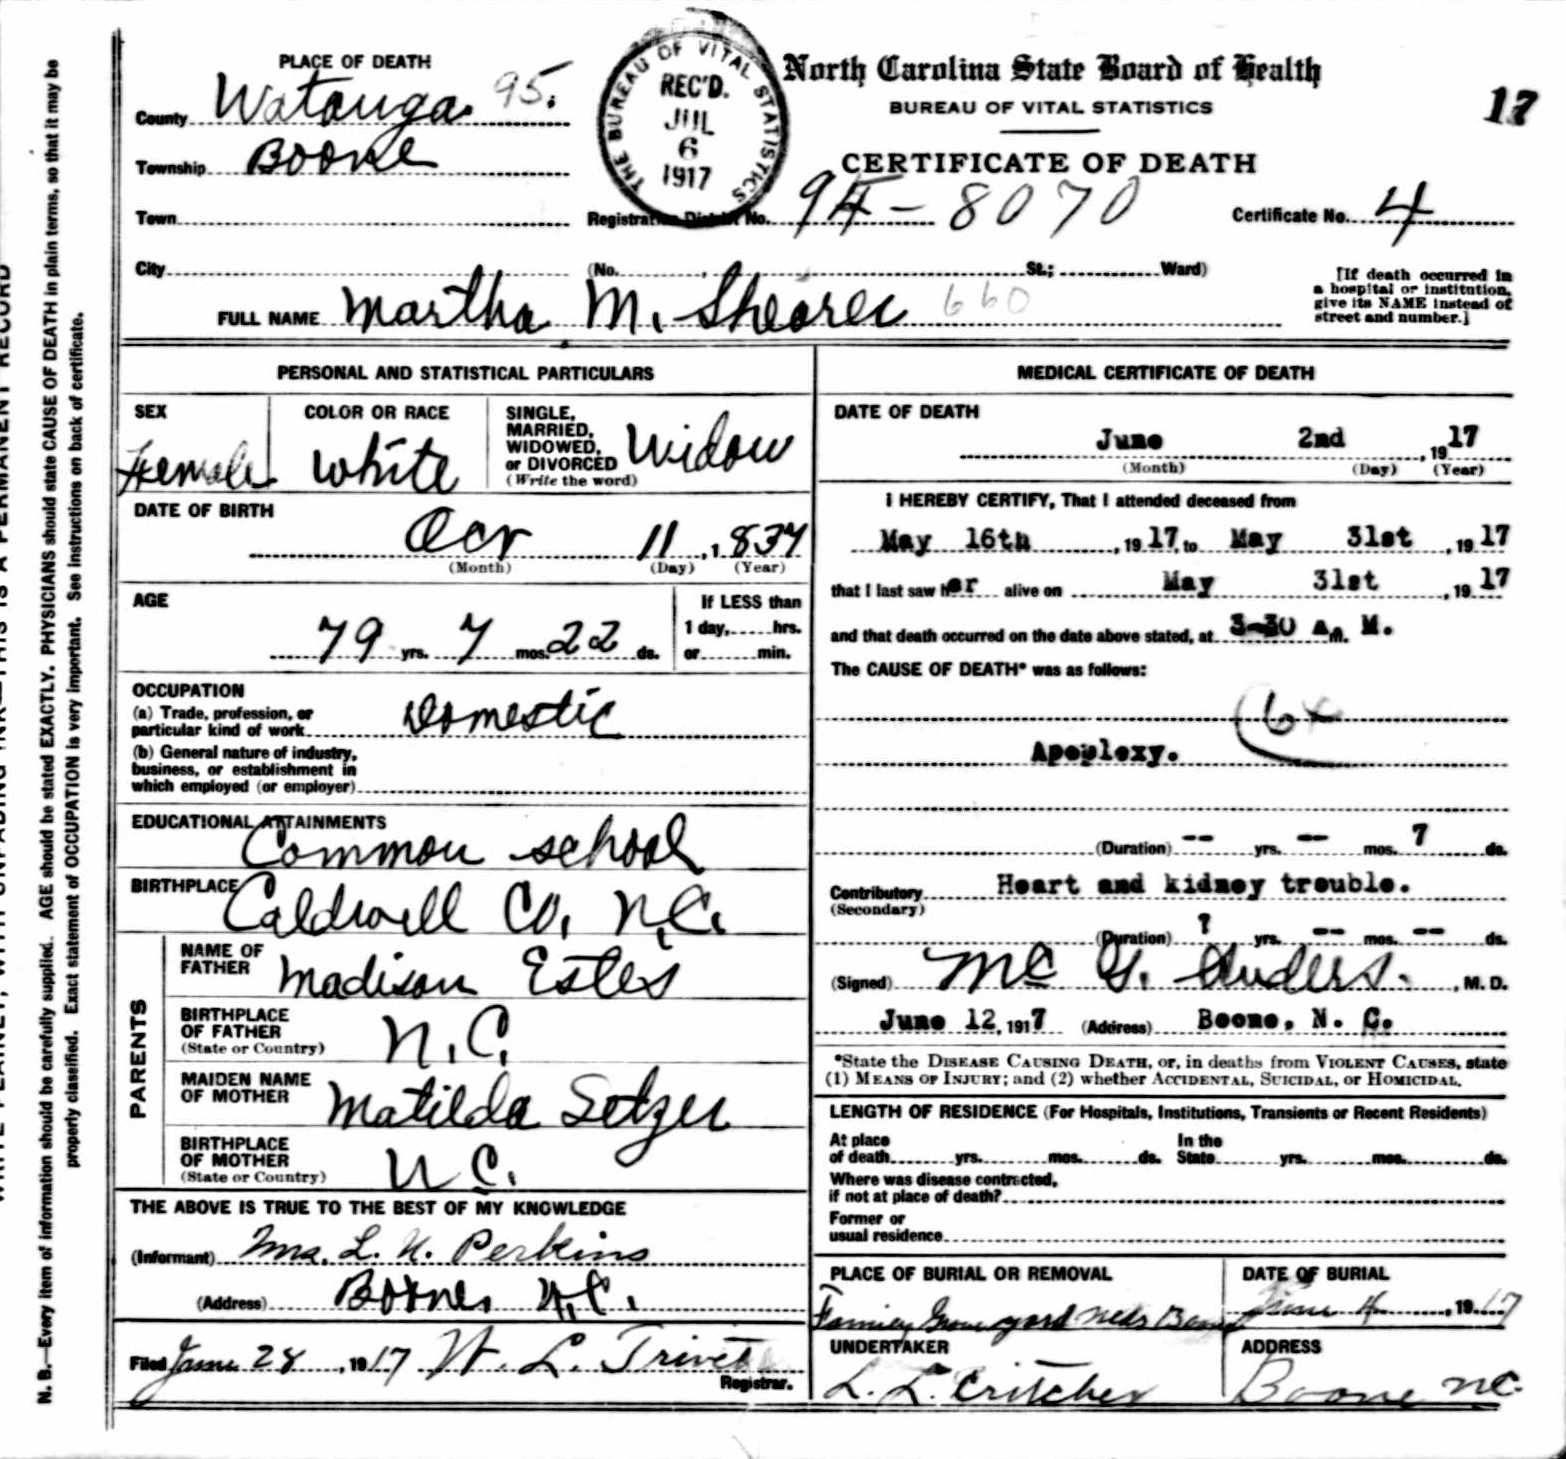 PLACE OF DEATH
County Watauga 95.
Township Boone
Town
City
THE BUREAU OF VITAL STATISTICS
REC'D.
JUL
6
1917
North Carolina State Board of Health
BUREAU OF VITAL STATISTICS
17
CERTIFICATE OF DEATH
Registration District No. 95-8070 Certificate No. 4
(No. St.; Ward)
[If death occurred in
a hospital or institution,
give its NAME instead of
street and number.]
FULL NAME Martha M. Shearer 660
PERSONAL AND STATISTICAL PARTICULARS
SEX
Female
COLOR OR RACE
White
SINGLE,
MARRIED,
WIDOWED,
or DIVORCED
(Write the word)
Widow
DATE OF BIRTH
Oct 11, 1837
(Month) (Day) (Year)
AGE
79 yrs. 7 mos. 22 ds.
If LESS than
1 day, hrs.
or min.
OCCUPATION
(a) Trade, profession, or
particular kind of work Domestic
(b) General nature of industry,
business, or establishment in
which employed (or employer)
EDUCATIONAL ATTAINMENTS
Common school
BIRTHPLACE
Caldwell Co, N.C.
PARENTS
NAME OF
FATHER Madison Estes
BIRTHPLACE
OF FATHER
(State or Country) N.C.
MAIDEN NAME
OF MOTHER Matilda Setzer
BIRTHPLACE
OF MOTHER
(State or Country) N.C.
THE ABOVE IS TRUE TO THE BEST OF MY KNOWLEDGE
(Informant) Mrs. L. N. Perkins
(Address) Boone, N.C.
Filed June 28, 1917 W. L. Trivett
Registrar.
MEDICAL CERTIFICATE OF DEATH
DATE OF DEATH
June 2nd, 1917
(Month) (Day) (Year)
I HEREBY CERTIFY, That I attended deceased from
May 16th, 1917, to May 31st, 1917
that I last saw her alive on May 31st, 1917
and that death occurred on the date above stated, at 3-30 a. m. M.
The CAUSE OF DEATH* was as follows:
64
Apoplexy.
(Duration) -- yrs. -- mos. 7 ds.
Contributory Heart and kidney trouble.
(Secondary)
(Duration) ? yrs. -- mos. -- ds.
(Signed) Mc G. Anders. , M. D.
June 12, 1917 (Address) Boone, N. C.
*State the DISEASE CAUSING DEATH, or, in deaths from VIOLENT CAUSES, state
(1) MEANS OF INJURY; and (2) whether ACCIDENTAL, SUICIDAL, or HOMICIDAL.
LENGTH OF RESIDENCE (For Hospitals, Institutions, Transients or Recent Residents)
At place
of death yrs. mos. ds.
In the
State yrs. mos. ds.
Where was disease contracted,
if not at place of death?
Former or
usual residence
PLACE OF BURIAL OR REMOVAL
Family Grave yard near Boone
DATE OF BURIAL
June 4, 1917
UNDERTAKER
L. L. Critcher
ADDRESS
Boone NC.
N. B.—Every item of information should be carefully supplied. AGE should be stated EXACTLY. PHYSICIANS should state CAUSE OF DEATH in plain terms, so that it may be
properly classified. Exact statement of OCCUPATION is very important. See instructions on back of certificate.